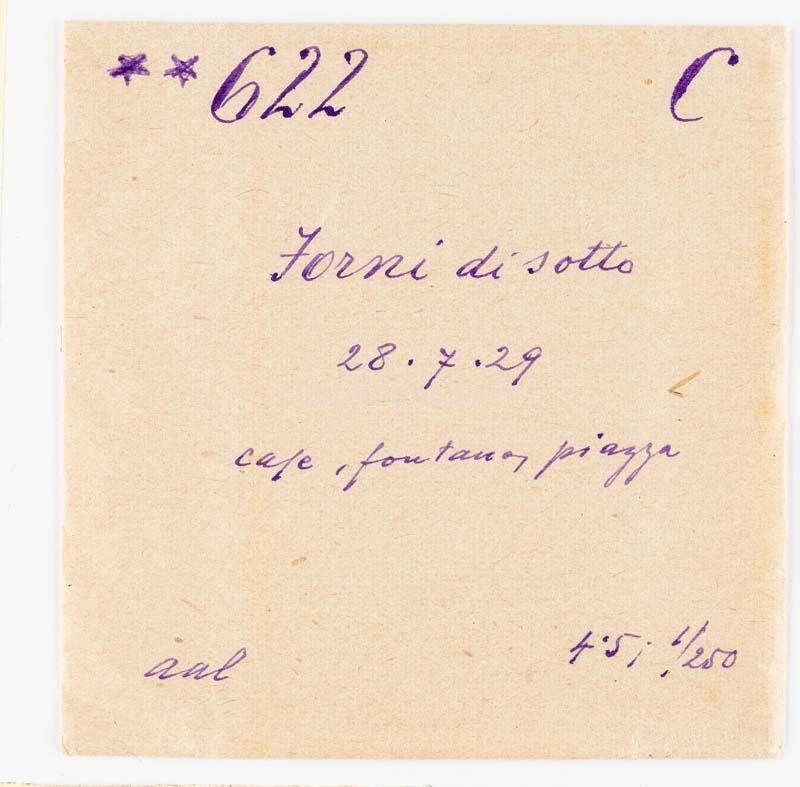 **622 C
Forni di sotto
28.7.29
case, fontana, piazza
aal 4.5; 1/250